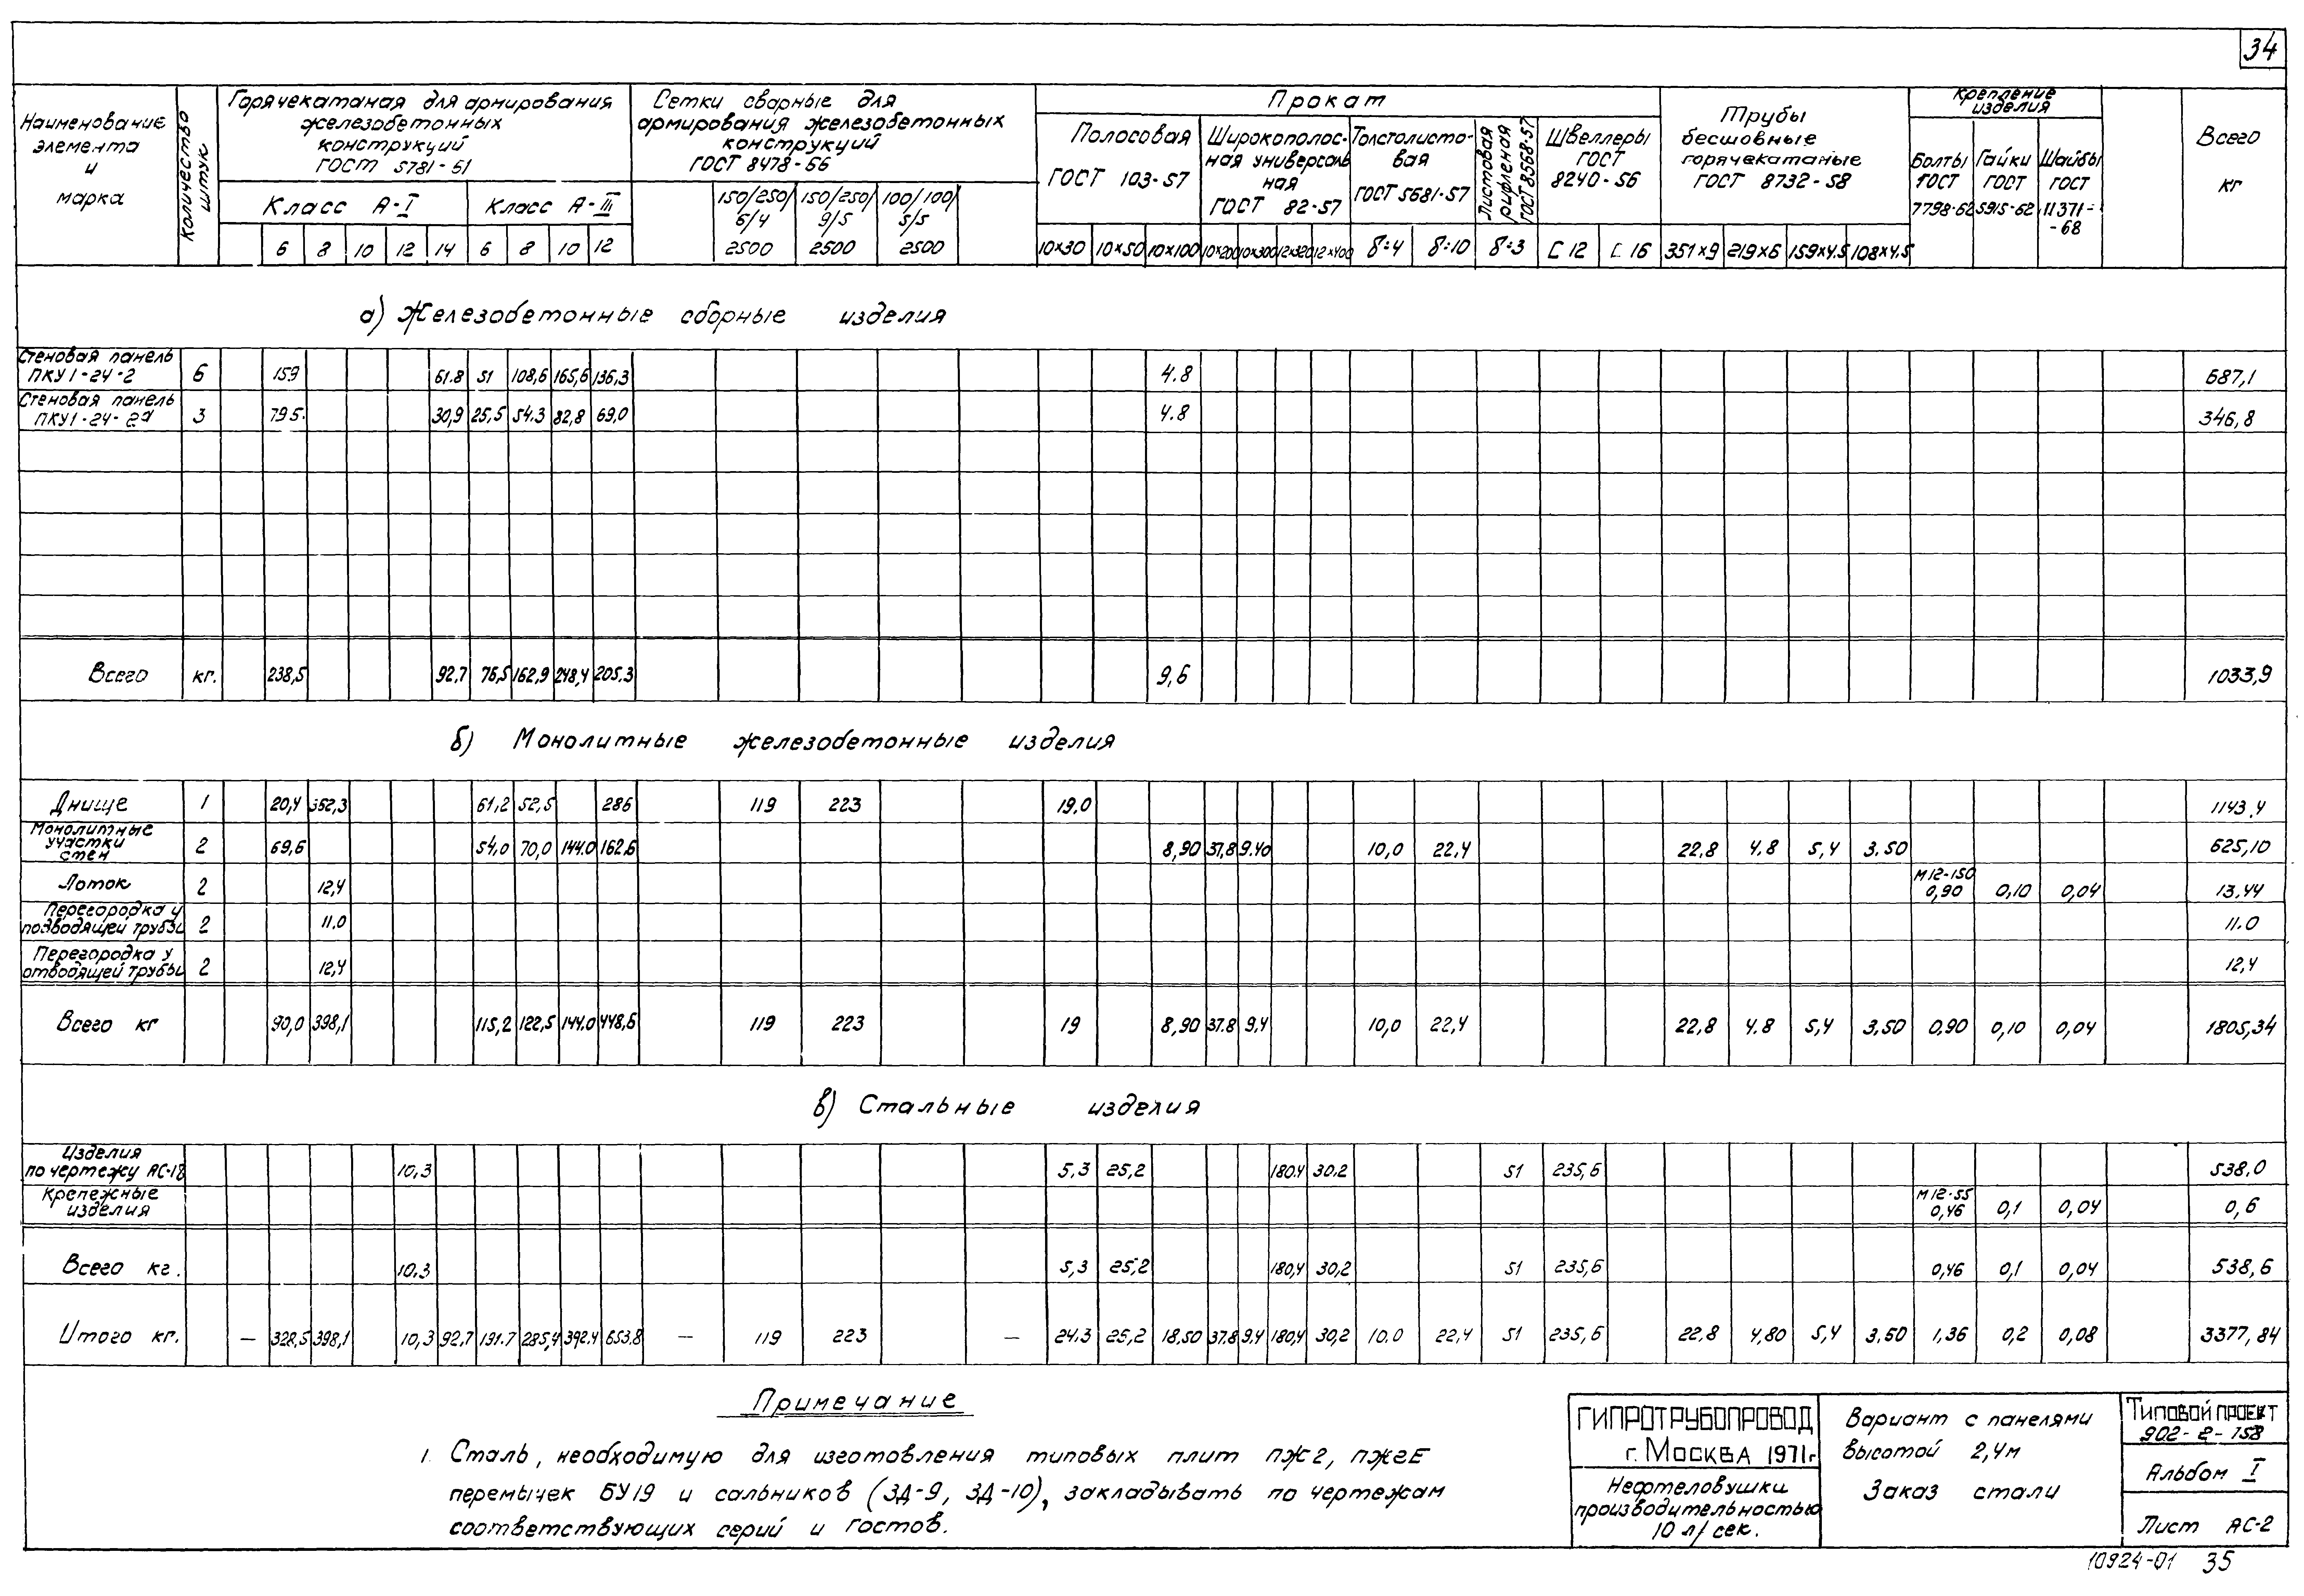 34
Наименование элемента и марка
Количество штук
Горячекатаная для армирования
железобетонных
конструкций
ГОСТ 5781-61
Класс А-I
Класс А-III
6 8 10 12 14 6 8 10 12
Сетки сварные для
армирования железобетонных
конструкций
ГОСТ 8478-66
150/250/6/4 2500
150/250/9/5 2500
100/100/5/5 2500
Прокат
Полосовая
ГОСТ 103-57
10×30 10×50 10×100
Широкополос-
ная универсаль
ная
ГОСТ 82-57
10×200 10×300 12×320 12×400
Толстолисто-
вая
ГОСТ 5681-57
δ=4 δ=10
Листовая рифленая ГОСТ 8568-57
δ=3
Швеллеры
ГОСТ
8240-56
[ 12 [ 16
Трубы
бесшовные
горячекатаные
ГОСТ 8732-58
351×9 219×6 159×4.5 108×4.5
Крепление
изделия
Болты ГОСТ 7798-62
Гайки ГОСТ 5915-62
Шайбы ГОСТ 11371-68
Всего
кг
а) Железобетонные сборные изделия
Стеновая панель
ПКУ1-24-2 6 159 61.8 51 108,6 165,6 136,3 4.8 687,1
Стеновая панель
ПКУ1-24-2а 3 79.5 30,9 25,5 54.3 82,8 69,0 4.8 346,8
Всего кг. 238,5 92,7 76,5 162,9 248,4 205.3 9,6 1033,9
б) Монолитные железобетонные изделия
Днище 1 20,4 362,3 61,2 52,5 286 119 223 19,0 1143,4
Монолитные
участки
стен 2 69,6 54,0 70,0 144.0 162,6 8,90 37,8 9.40 10,0 22,4 22,8 4.8 5,4 3.50 625,10
Лоток 2 12,4 М12-150 0,90 0,10 0,04 13.44
Перегородка у
подводящей трубы 2 11.0 11.0
Перегородка у
отводящей трубы 2 12,4 12,4
Всего кг 90,0 398,1 115,2 122,5 144.0 448,6 119 223 19 8,90 37.8 9,4 10,0 22,4 22,8 4.8 5,4 3,50 0,90 0,10 0,04 1805,34
в) Стальные изделия
Изделия
по чертежу АС-18 10,3 5,3 25,2 180.4 30.2 51 235,6 538.0
Крепежные
изделия М12-55 0,46 0,1 0,04 0,6
Всего кг. 10.3 5,3 25,2 180,4 30,2 51 235,6 0,46 0,1 0,04 538,6
Итого кг. — 328,5 398,1 10,3 92,7 191.7 285,4 392.4 653.8 — 119 223 — 24.3 25,2 18.50 37.8 9.4 180,4 30,2 10.0 22,4 51 235,6 22.8 4,80 5,4 3,50 1,36 0,2 0,08 3377,84
Примечание
1. Сталь, необходимую для изготовления типовых плит ПЖ2, ПЖ2Е
перемычек БУ19 и сальников (ЗД-9, ЗД-10), закладывать по чертежам
соответствующих серий и гостов.
ГИПРОТРУБОПРОВОД
г. Москва 1971г
Нефтеловушки
производительностью
10 л/сек.
Вариант с панелями
высотой 2,4м
Заказ стали
Типовой проект
902-2-158
Альбом I
Лист АС-2
10924-01 35